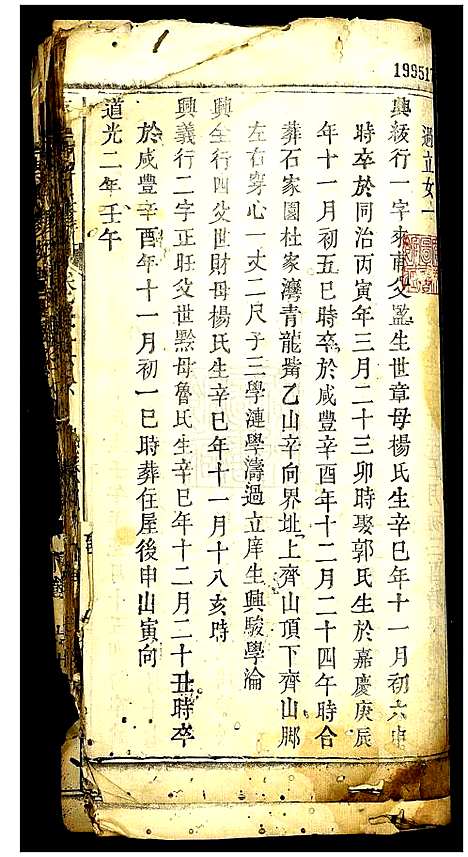 199517
過立女一
興級行一字來甫父監生世章母楊氏生辛巳年十一月初六申
時卒於同治丙寅年三月二十三卯時娶郭氏生於嘉慶庚辰
年十一月初五巳時卒於咸豐辛酉年十二月二十四午時合
葬石家園杜家灣青龍觜乙山辛向界址上齊山頂下齊山脚
左右穿心一丈二尺子三學漣學濤過立庠生興駿學淪
興全行四父世財母楊氏生辛巳年十一月十八亥時
興義行二字正旺父世黙母魯氏生辛巳年十二月二十丑時卒
於咸豐辛酉年十一月初一巳時葬住屋後申山寅向
道光二年壬午